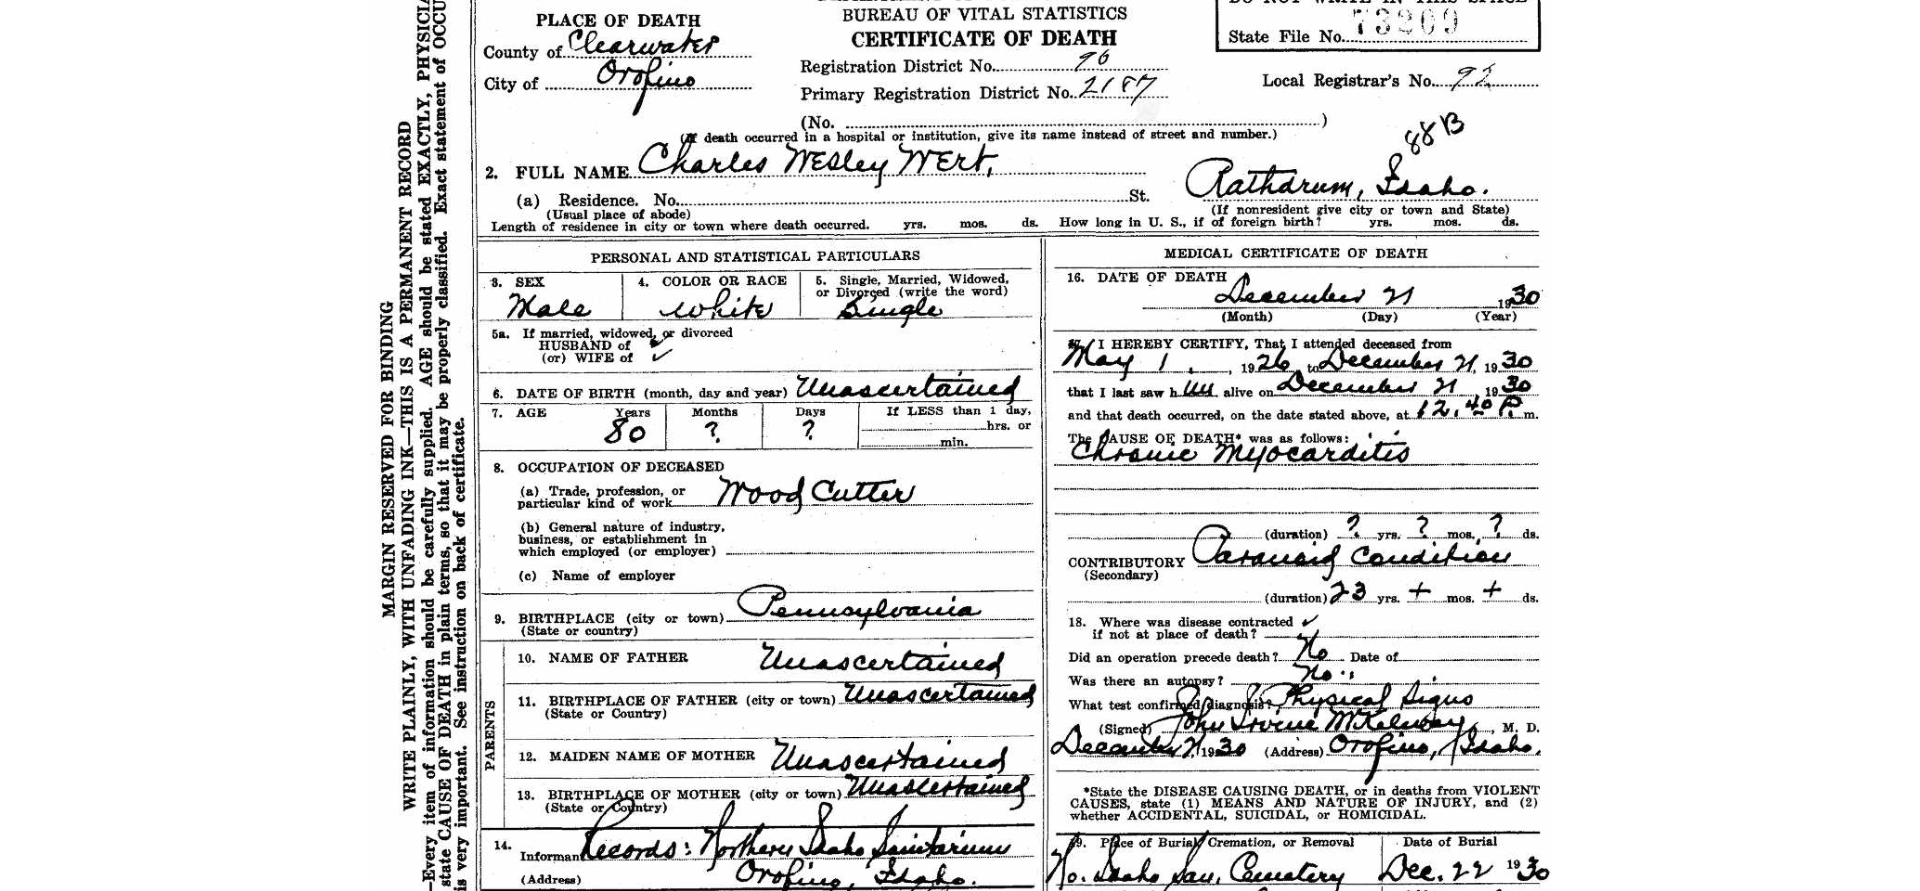 PLACE OF DEATH
County of Clearwater
City of Orofino
BUREAU OF VITAL STATISTICS
CERTIFICATE OF DEATH
Registration District No. 96
Primary Registration District No. 2187
DO NOT WRITE IN THIS SPACE
State File No. 73209
Local Registrar's No. 92
(No. )
(If death occurred in a hospital or institution, give its name instead of street and number.)
88B
2. FULL NAME Charles Wesley Wert,
(a) Residence. No. St. Rathdrum, Idaho.
(Usual place of abode) (If nonresident give city or town and State)
Length of residence in city or town where death occurred. yrs. mos. ds. How long in U. S., if of foreign birth? yrs. mos. ds.
PERSONAL AND STATISTICAL PARTICULARS
3. SEX
Male
4. COLOR OR RACE
White
5. Single, Married, Widowed,
or Divorced (write the word)
Single
5a. If married, widowed, or divorced
HUSBAND of ✓
(or) WIFE of ✓
6. DATE OF BIRTH (month, day and year) Unascertained
7. AGE Years Months Days If LESS than 1 day,
80 ? ? hrs. or
min.
8. OCCUPATION OF DECEASED
(a) Trade, profession, or
particular kind of work Wood Cutter
(b) General nature of industry,
business, or establishment in
which employed (or employer)
(c) Name of employer
9. BIRTHPLACE (city or town) Pennsylvania
(State or country)
PARENTS
10. NAME OF FATHER Unascertained
11. BIRTHPLACE OF FATHER (city or town) Unascertained
(State or Country)
12. MAIDEN NAME OF MOTHER Unascertained
13. BIRTHPLACE OF MOTHER (city or town) Unascertained
(State or Country)
14.
Informant Records: Northern Idaho Sanitarium
(Address) Orofino, Idaho.
MEDICAL CERTIFICATE OF DEATH
16. DATE OF DEATH
December 21 1930
(Month) (Day) (Year)
17. I HEREBY CERTIFY, That I attended deceased from
May 1, 1926 to December 21, 1930
that I last saw him alive on December 21 1930
and that death occurred, on the date stated above, at 12.40 P. m.
The CAUSE OF DEATH* was as follows:
Chronic Myocarditis
(duration) ? yrs. ? mos. ? ds.
CONTRIBUTORY Paranoid Condition
(Secondary)
(duration) 23 yrs. + mos. + ds.
18. Where was disease contracted ✓
if not at place of death?
Did an operation precede death? No Date of
Was there an autopsy? No.
What test confirmed diagnosis? Physical Signs
(Signed) John Irvine McKelway, M. D.
December 21, 1930 (Address) Orofino, Idaho.
*State the DISEASE CAUSING DEATH, or in deaths from VIOLENT
CAUSES, state (1) MEANS AND NATURE OF INJURY, and (2)
whether ACCIDENTAL, SUICIDAL, or HOMICIDAL.
19. Place of Burial, Cremation, or Removal
No. Idaho San. Cemetery
Date of Burial
Dec. 22 1930
MARGIN RESERVED FOR BINDING
WRITE PLAINLY, WITH UNFADING INK—THIS IS A PERMANENT RECORD
—Every item of information should be carefully supplied. AGE should be stated EXACTLY, PHYSICIA
state CAUSE OF DEATH in plain terms, so that it may be properly classified. Exact statement of OCCU
is very important. See instruction on back of certificate.